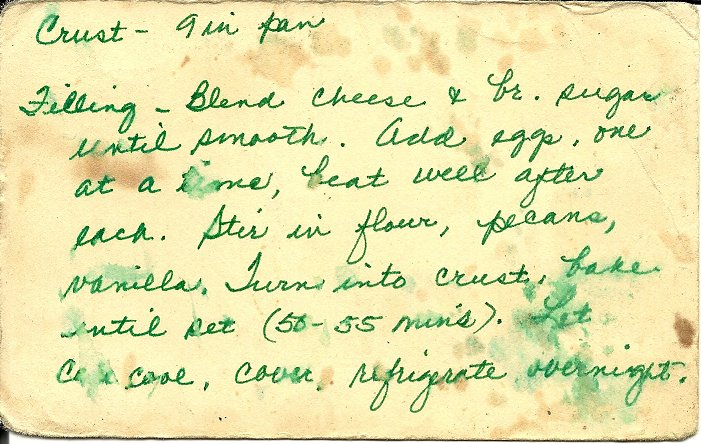 Crust - 9 in pan
Filling - Blend cheese & br. sugar
until smooth. Add eggs, one
at a time, beat well after
each. Stir in flour, pecans,
vanilla. Turn into crust, bake
until set (50-55 min's). Let
cool, cover, refrigerate overnight.